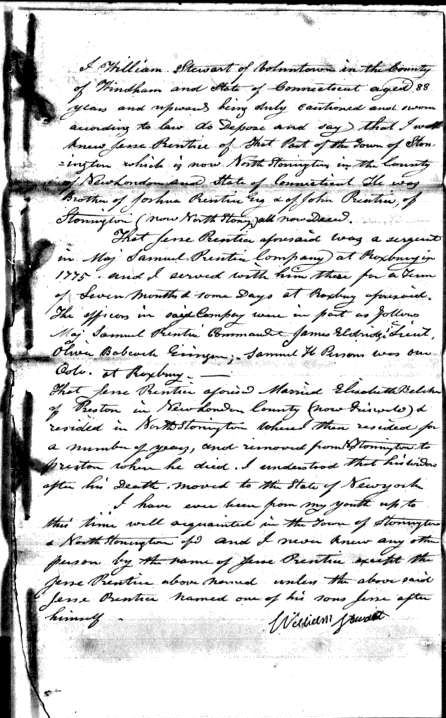 I William Stewart of Voluntown in the County
of Windham and State of Connecticut aged 88
years and upwards being duly cautioned and sworn
according to law do Depose and say, that I well
knew Jesse Prentice of that Part of the Town of Ston-
ington which is now North Stonington in the County
of New London and State of Connecticut He was
Brother of Joshua Prentice Esq & of John Prentice, of
Stonington (now North Stony) all now Decd.
That Jesse Prentice aforesaid was a sergeant
in Maj Samuel Prentis Company at Roxbury in
1775. and I served with him there for a Term
of Seven Months & some Days at Roxbury aforesaid.
The officers in said Company were in part as follows
Maj. Samuel Prentis Command James Eldridge Lieut.
Oliver Babcock Ensign, Samuel H Persons was our
Colo. at Roxbury.
That Jesse Prentice aforesd Married Elizabeth Belcher
of Preston in New London County (now Griswold) &
resided in North Stonington where then resided for
a number of years, and removed from N Stonington to
Preston where he died. I understood that his widow
after his Death moved to the State of Newyork
I have ever been from my youth up to
this time well acquainted in the Town of Stonington
& North Stonington afsd and I never knew any other
person by the name of Jesse Prentice except the
Jesse Prentice above named unless the above said
Jesse Prentice named one of his sons Jesse after
himself.
William Stewart